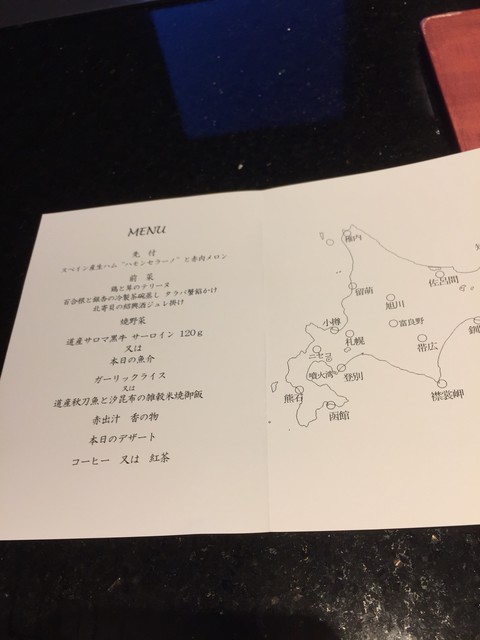 MENU
先 付
スペイン産生ハム "ハモンセラーノ" と赤肉メロン
前 菜
鶏と茸のテリーヌ
百合根と銀杏の冷製茶碗蒸し タラバ蟹餡かけ
北寄貝の紹興酒ジュレ掛け
焼野菜
道産サロマ黒牛 サーロイン 120g
又は
本日の魚介
ガーリックライス
又は
道産秋刀魚と汐昆布の雑穀米焼御飯
赤出汁 香の物
本日のデザート
コーヒー 又は 紅茶
稚内
佐呂間
留萌
旭川
小樽
富良野
札幌
帯広
ニセコ
噴火湾
登別
熊石
襟裳岬
函館